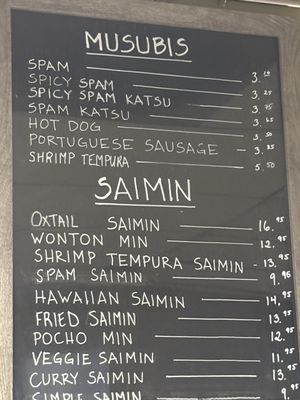 MUSUBIS
SPAM — 3.10
SPICY SPAM — 3.25
SPICY SPAM KATSU — 3.75
SPAM KATSU — 3.65
HOT DOG — 3.50
PORTUGUESE SAUSAGE — 3.85
SHRIMP TEMPURA — 5.50
SAIMIN
OXTAIL SAIMIN — 16.95
WONTON MIN — 12.95
SHRIMP TEMPURA SAIMIN - 13.95
SPAM SAIMIN — 9.95
HAWAIIAN SAIMIN — 14.95
FRIED SAIMIN — 13.95
POCHO MIN — 12.95
VEGGIE SAIMIN — 11.95
CURRY SAIMIN — 13.95
SIMPLE SAIMIN — 9.95